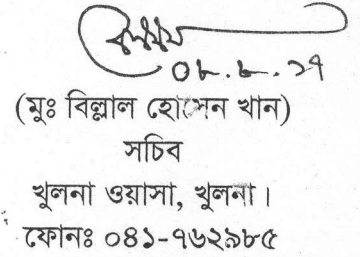 ০৮.৮.১৭
(মুঃ বিল্লাল হোসেন খান)
সচিব
খুলনা ওয়াসা, খুলনা।
ফোনঃ ০৪১-৭৬২৯৮৫